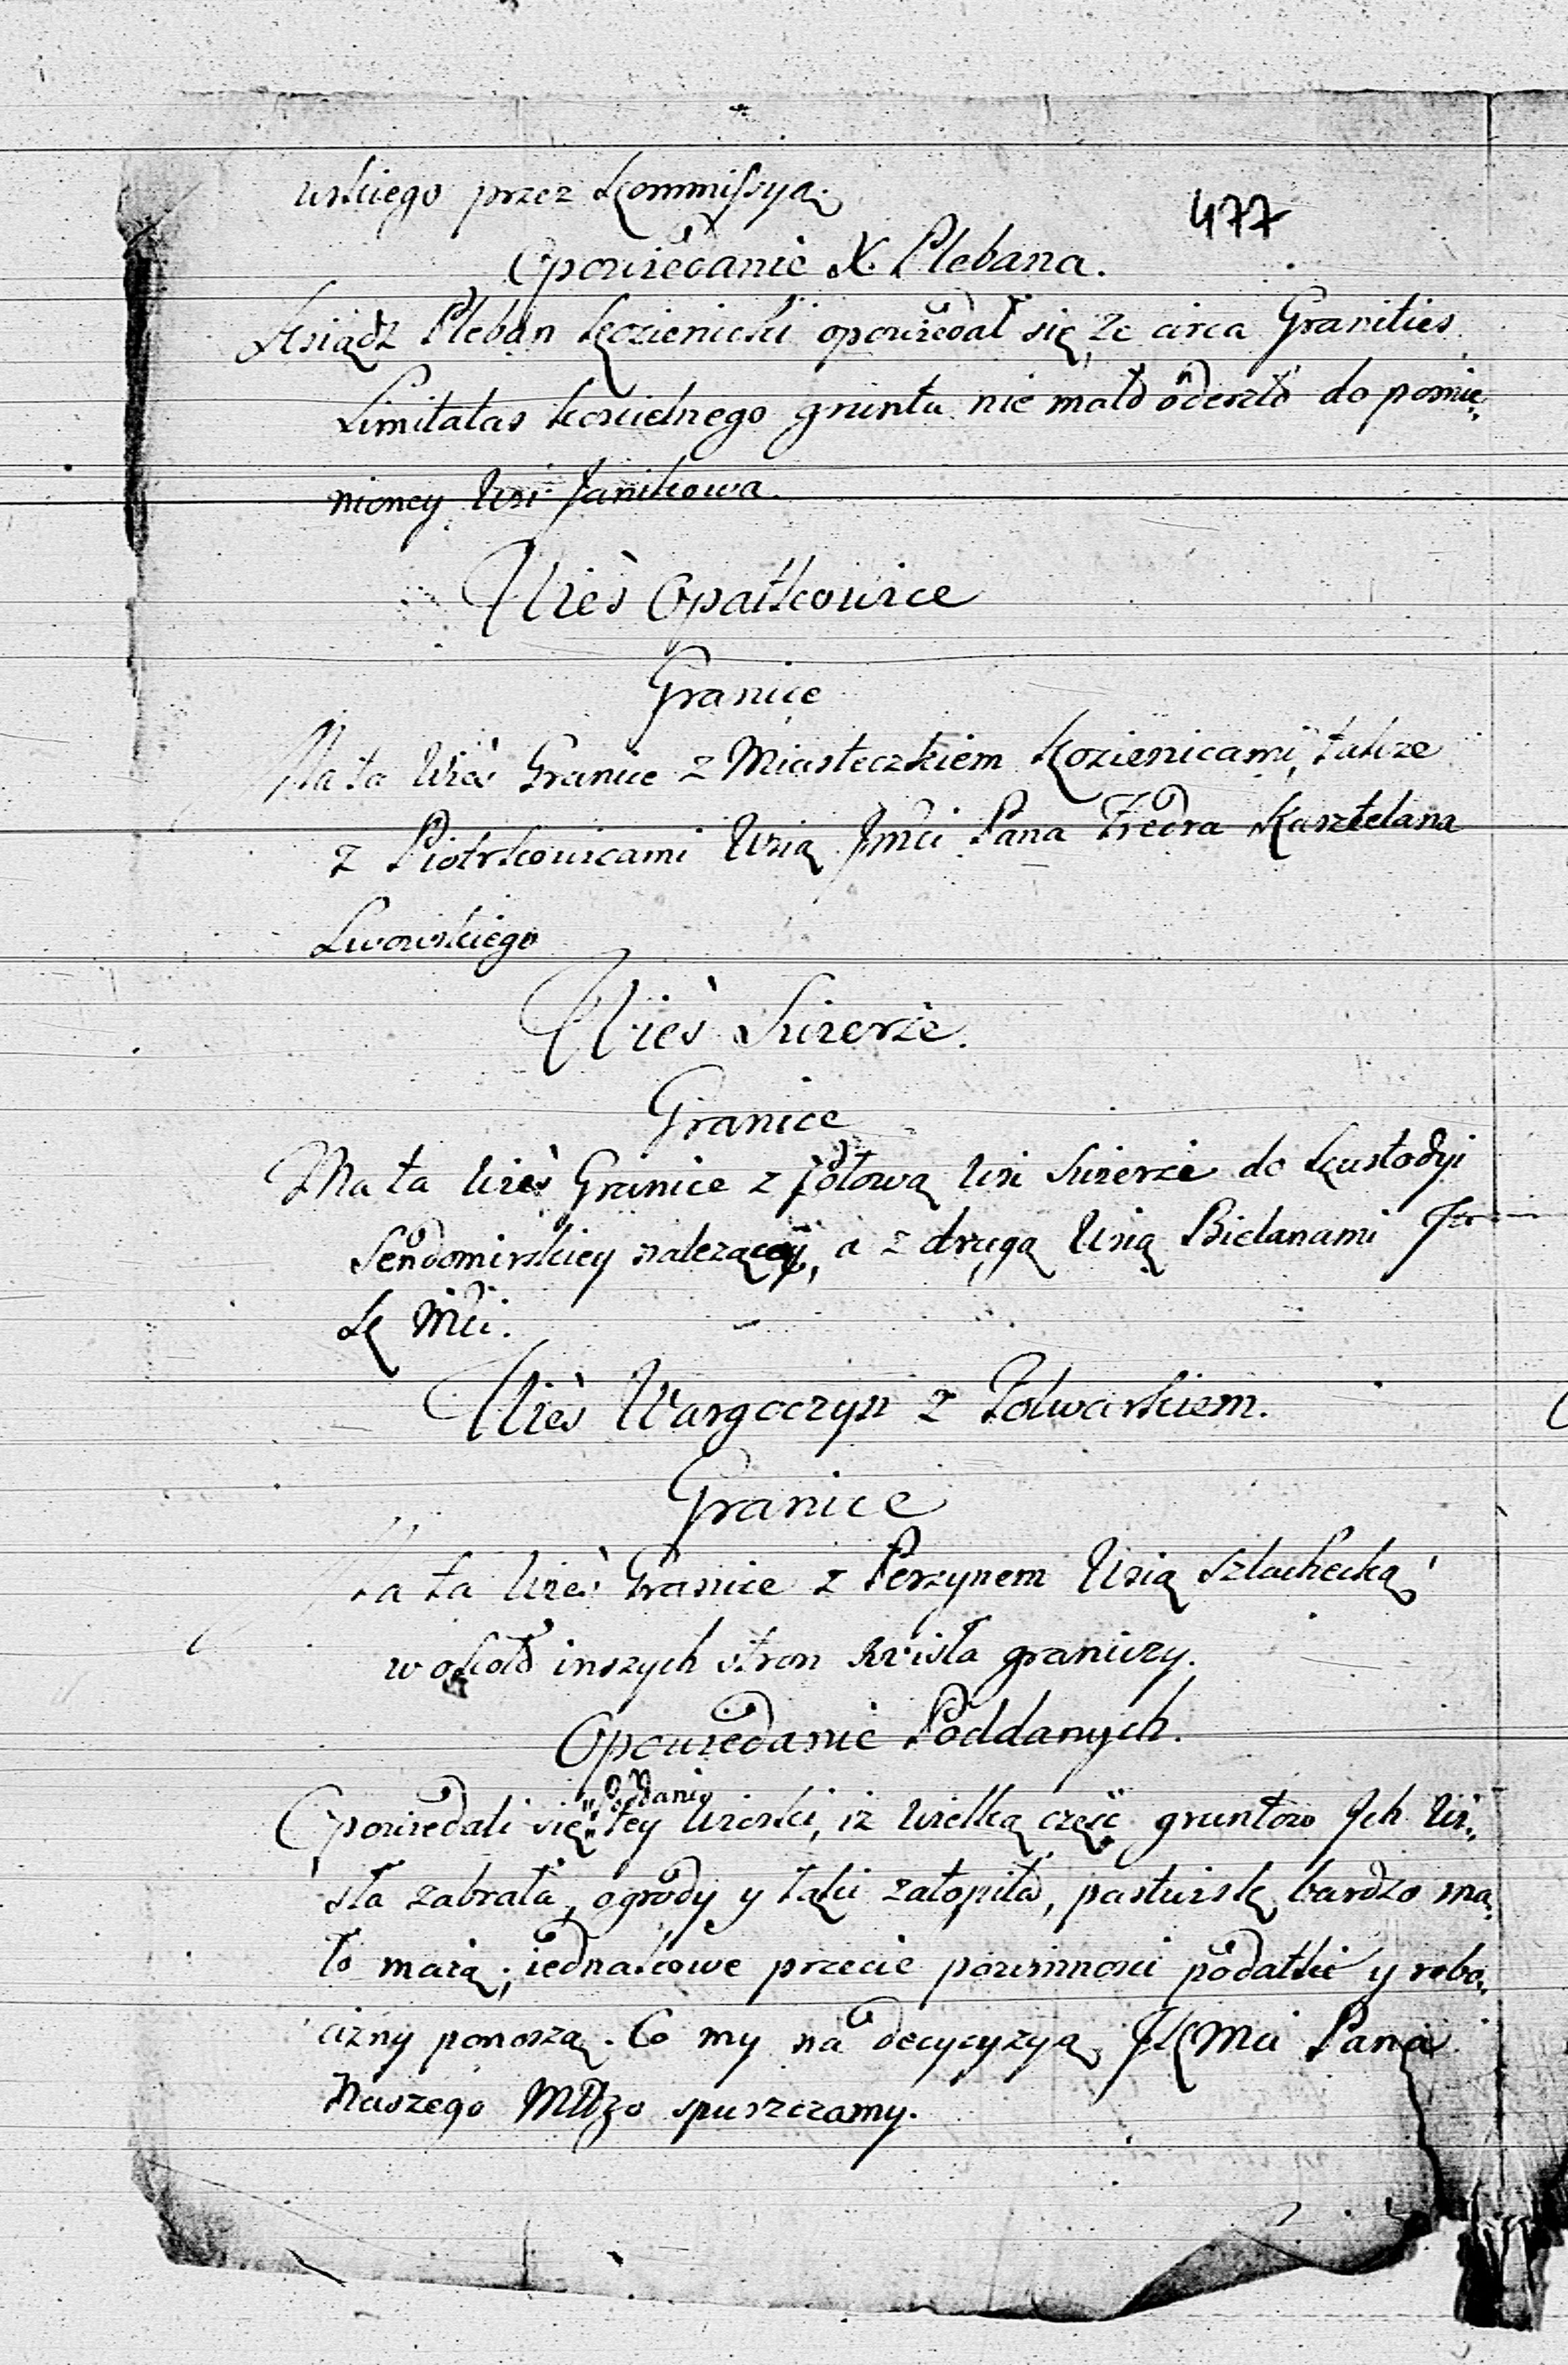 wskiego przez Kommissyą.
477
Opowiedanie X. Plebana.
Ksiądz Pleban Kozienicki opowiedał się, że circa Granities
Limitatas koscielnego gruntu nie mało oderzło do pomie„
nioney Wsi Janikowa.
Wieś Opatkowice
Granice
Ma ta Wieś Granice z Miasteczkiem Kozienicami, także
z Piotrkowicami Wsią Jmci Pana Fredra Kasztelana
Lwowskiego
Wieś Swierże.
Granice
Ma ta wieś Granice z połową wsi Swierże do Kustodyi
Sendomirskiey należącey, a z drugą Wsią Bielanami J
K Mci.
Wieś Wargoczyn z Folwarkiem.
Granice
Ma ta wieś Granice z Perzynem Wsią szlachecką
wokoło inszych stron Wisła graniczy.
Opowiedanie Poddanych.
Opowiedali się Poddani tey wioski, iż wielką część gruntow Jch Wi„
sła zabrała, ogrody y łąki zatopiła, pastwisk bardzo ma„
ło maią; iednakowe przecie powinnosci podatki y robo„
cizny ponoszą. Co my na decyzyą JKMci Pana
Naszego Młgo spuszczamy.